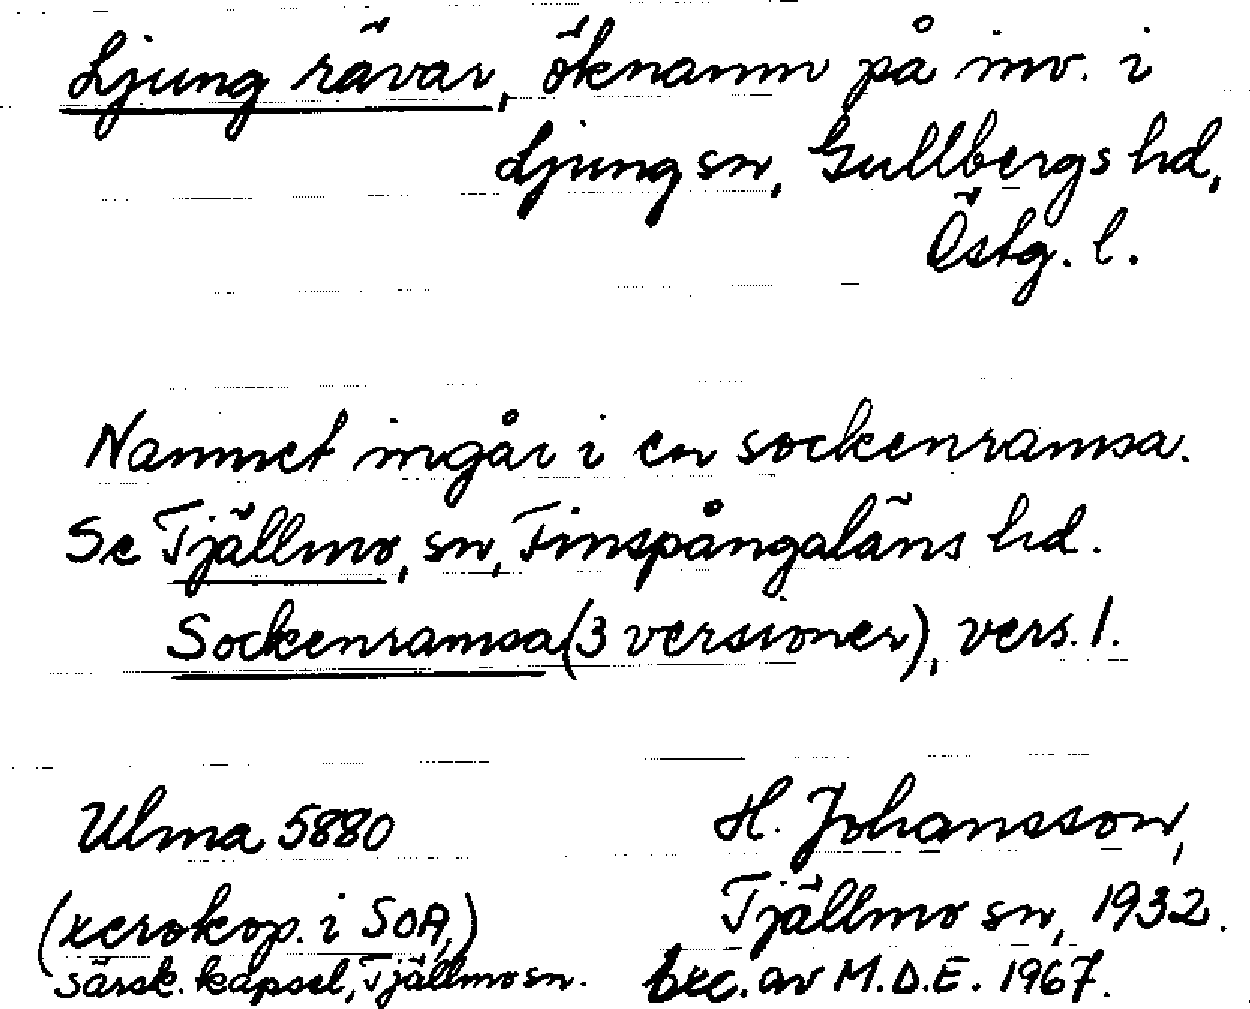 Ljung rävar, öknamn på inv. i
Ljung sn, Gullbergs hd,
Östg. l.
Namnet ingår i en sockenramsa.
Se Tjällmo, sn, Finspångaläns hd.
Sockenramsa (3 versioner), vers. 1.
Ulma 5880
H. Johansson,
(xerokop. i SOA,)
Tjällmo sn, 1932.
särsk. kapsel, Tjällmo sn.
exc. av M.D.E. 1967.